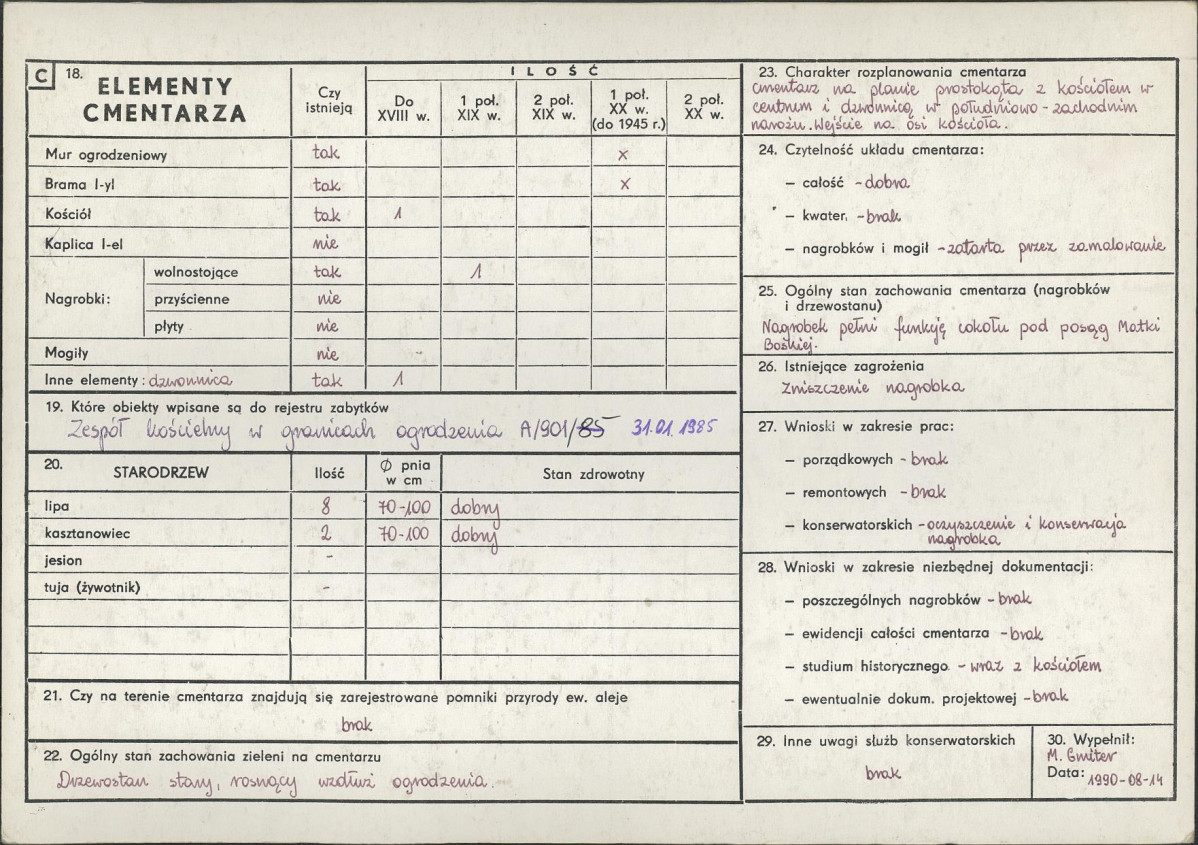 C 18. ELEMENTY CMENTARZA
Czy istnieją
ILOŚĆ
Do XVIII w.
1 poł. XIX w.
2 poł. XIX w.
1 poł. XX w. (do 1945 r.)
2 poł. XX w.
Mur ogrodzeniowy tak x
Brama I-yl tak x
Kościół tak 1
Kaplica I-el nie
Nagrobki:
wolnostojące tak 1
przyścienne nie
płyty nie
Mogiły nie
Inne elementy: dzwonnica tak 1
19. Które obiekty wpisane są do rejestru zabytków
Zespół kościelny w granicach ogrodzenia A/901/85 31.01.1985
20. STARODRZEW Ilość Ø pnia w cm Stan zdrowotny
lipa 8 70-100 dobry
kasztanowiec 2 70-100 dobry
jesion -
tuja (żywotnik) -
21. Czy na terenie cmentarza znajdują się zarejestrowane pomniki przyrody ew. aleje
brak
22. Ogólny stan zachowania zieleni na cmentarzu
Drzewostan stary, rosnący wzdłuż ogrodzenia.
23. Charakter rozplanowania cmentarza
cmentarz na planie prostokąta z kościołem w
centrum i dzwonnicą w południowo-zachodnim
narożu. Wejście na osi kościoła.
24. Czytelność układu cmentarza:
– całość - dobra
– kwater, - brak
– nagrobków i mogił - zatarta przez zamalowanie
25. Ogólny stan zachowania cmentarza (nagrobków
i drzewostanu)
Nagrobek pełni funkcję cokołu pod posąg Matki
Boskiej.
26. Istniejące zagrożenia
Zniszczenie nagrobka
27. Wnioski w zakresie prac:
– porządkowych - brak
– remontowych - brak
– konserwatorskich - oczyszczenie i konserwacja
nagrobka
28. Wnioski w zakresie niezbędnej dokumentacji:
– poszczególnych nagrobków - brak
– ewidencji całości cmentarza - brak
– studium historycznego - wraz z kościołem
– ewentualnie dokum. projektowej - brak
29. Inne uwagi służb konserwatorskich
brak
30. Wypełnił:
M. Gmiter
Data: 1990-08-14